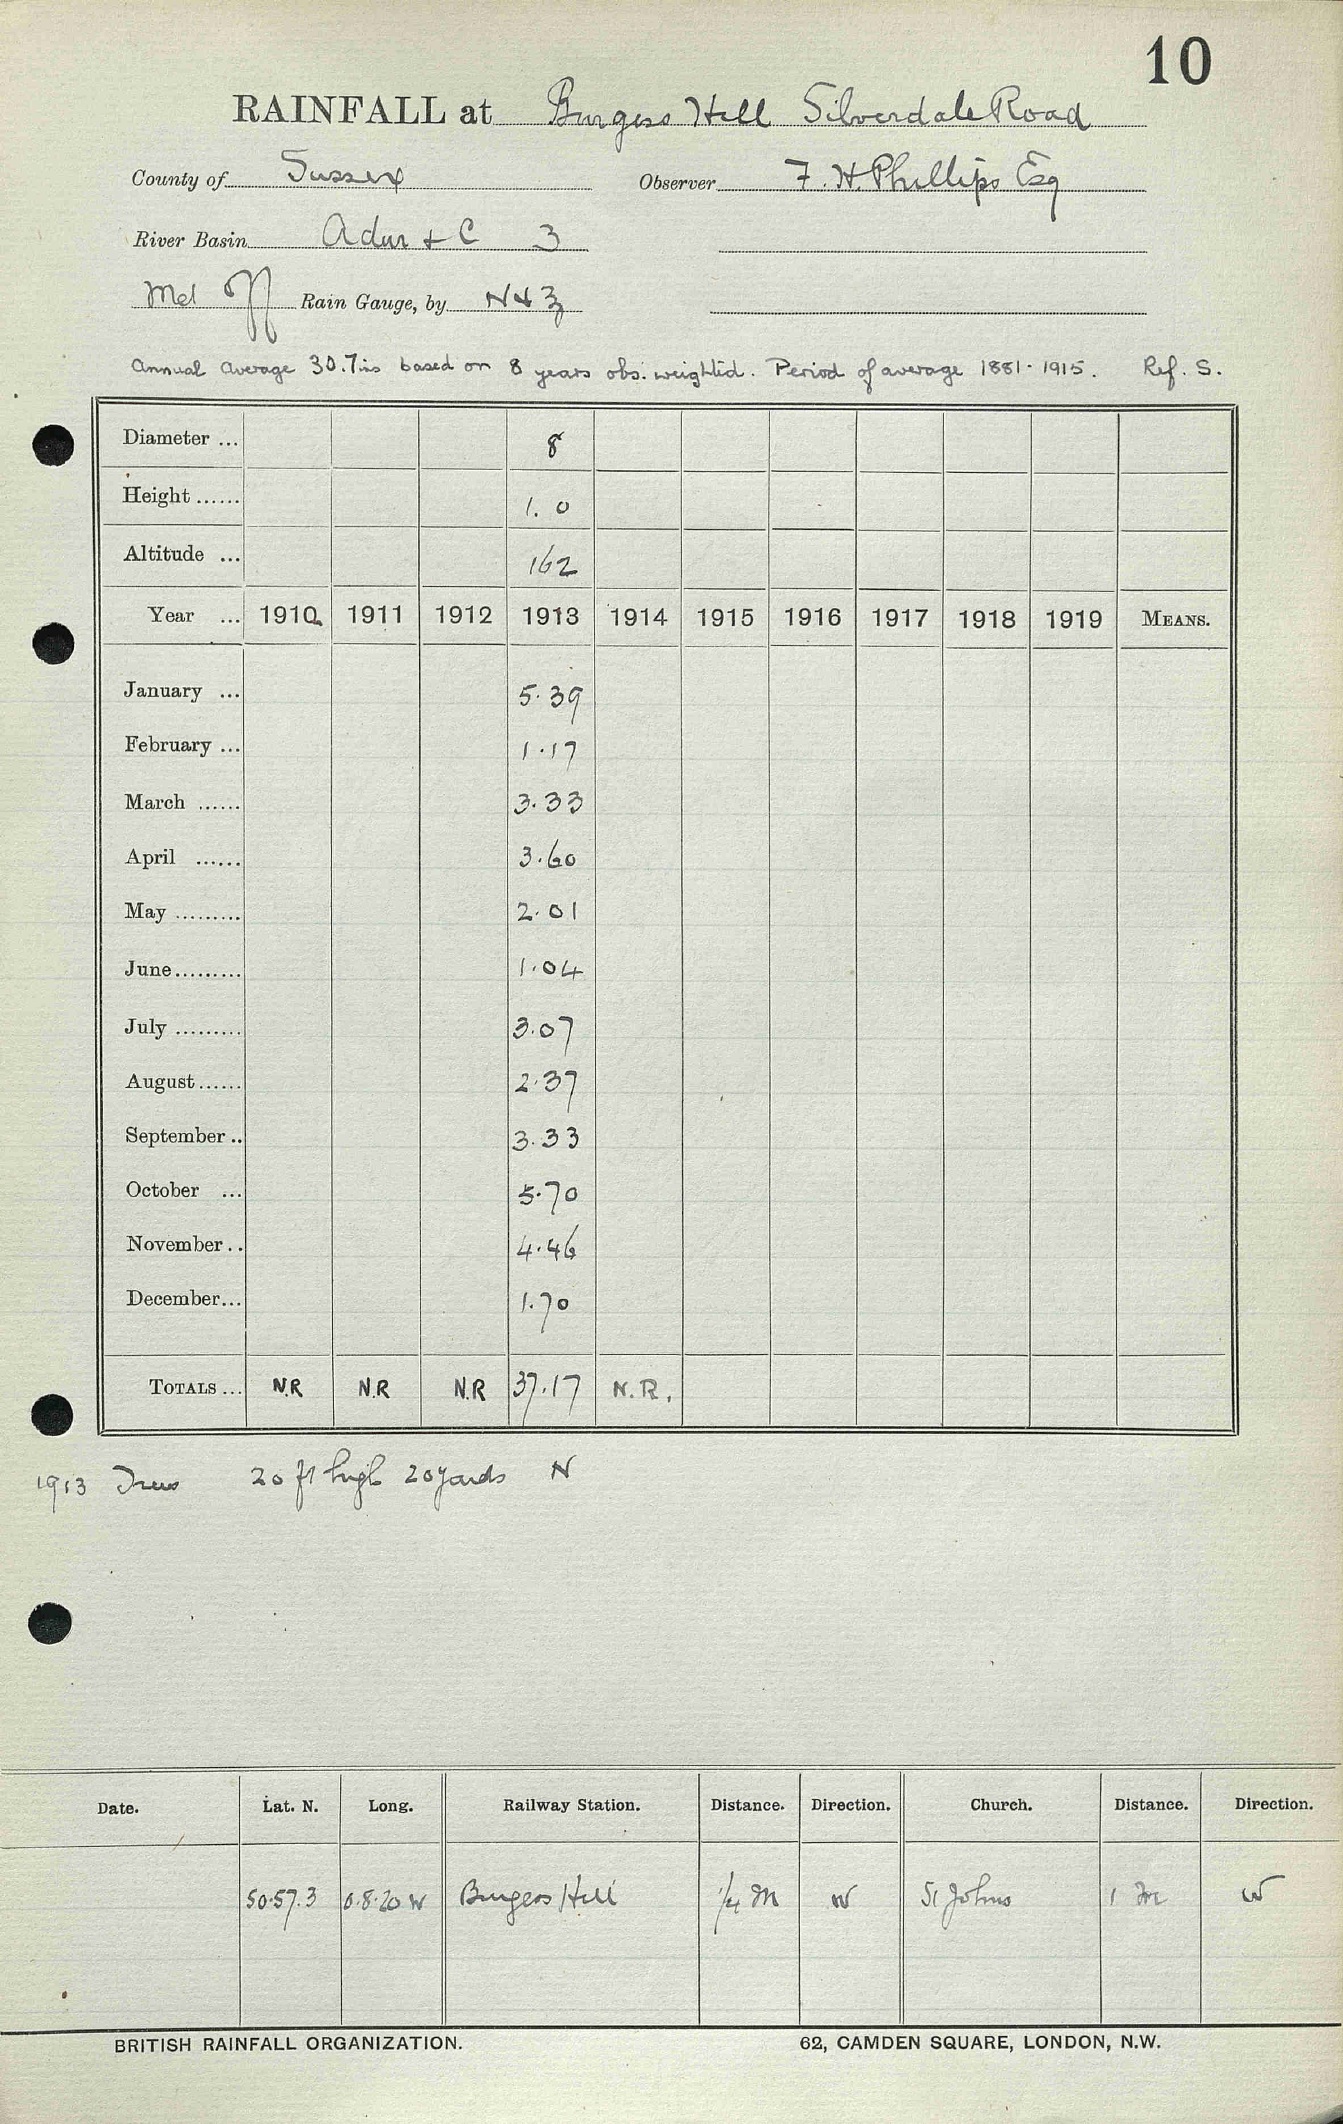 10
RAINFALL at Burgess Hill Silverdale Road
County of Sussex Observer F. H. Phillips Esq
River Basin Adur & C 3
Met Off Rain Gauge, by N & Z
Annual average 30.7 ins based on 8 years obs. weighted. Period of average 1881-1915. Ref. S.
Diameter ... 8
Height ...... 1. 0
Altitude ... 162
Year ... 1910 1911 1912 1913 1914 1915 1916 1917 1918 1919 MEANS.
January ... 5.39
February ... 1.17
March ...... 3.33
April ...... 3.60
May ......... 2.01
June ......... 1.04
July ......... 3.07
August ...... 2.37
September .. 3.33
October ... 5.70
November .. 4.46
December ... 1.70
TOTALS ... N.R N.R N.R 37.17 N.R.
1913 Trees 20 ft high 20 yards N
Date. Lat. N. Long. Railway Station. Distance. Direction. Church. Distance. Direction.
50.57.3 0.8.20 W Burgess Hill 1/4 m W St Johns 1 m W
BRITISH RAINFALL ORGANIZATION. 62, CAMDEN SQUARE, LONDON, N.W.